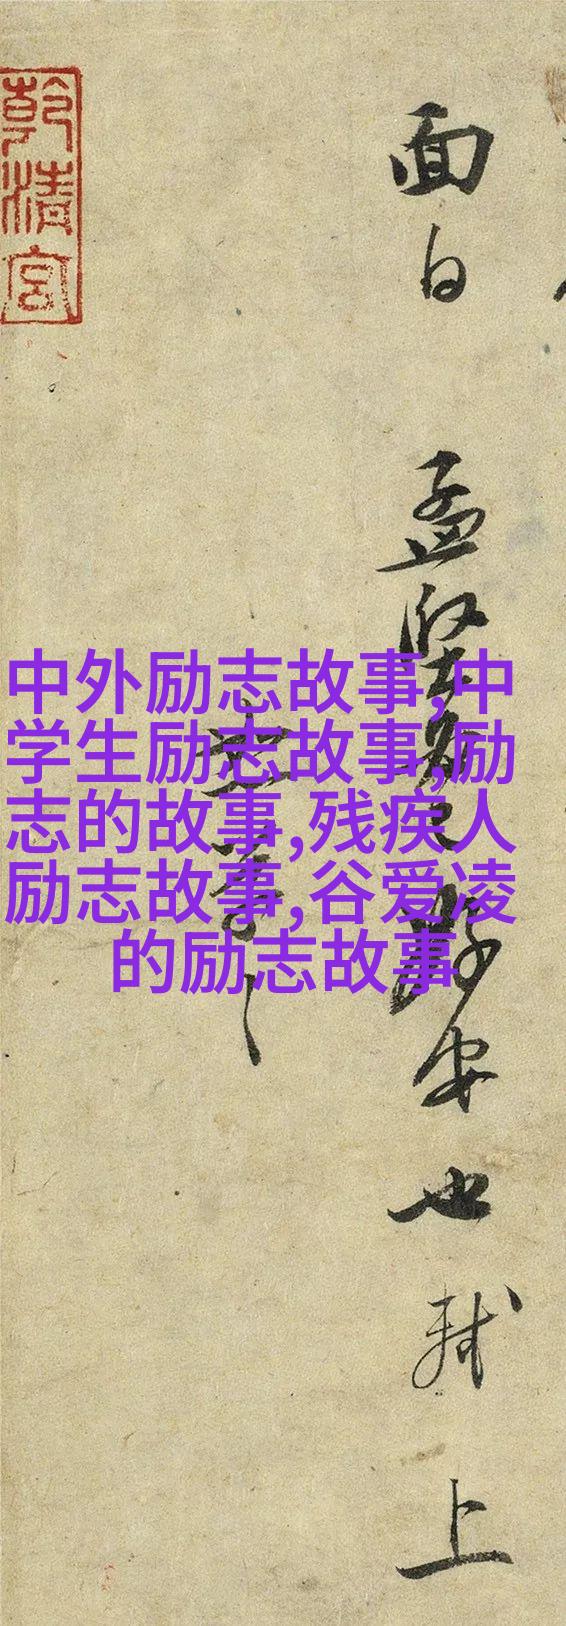 乾清宮
面白
孟堅
安也軾上
中外励志故事,中
学生励志故事,励
志的故事,残疾人
励志故事,谷爱凌
的励志故事